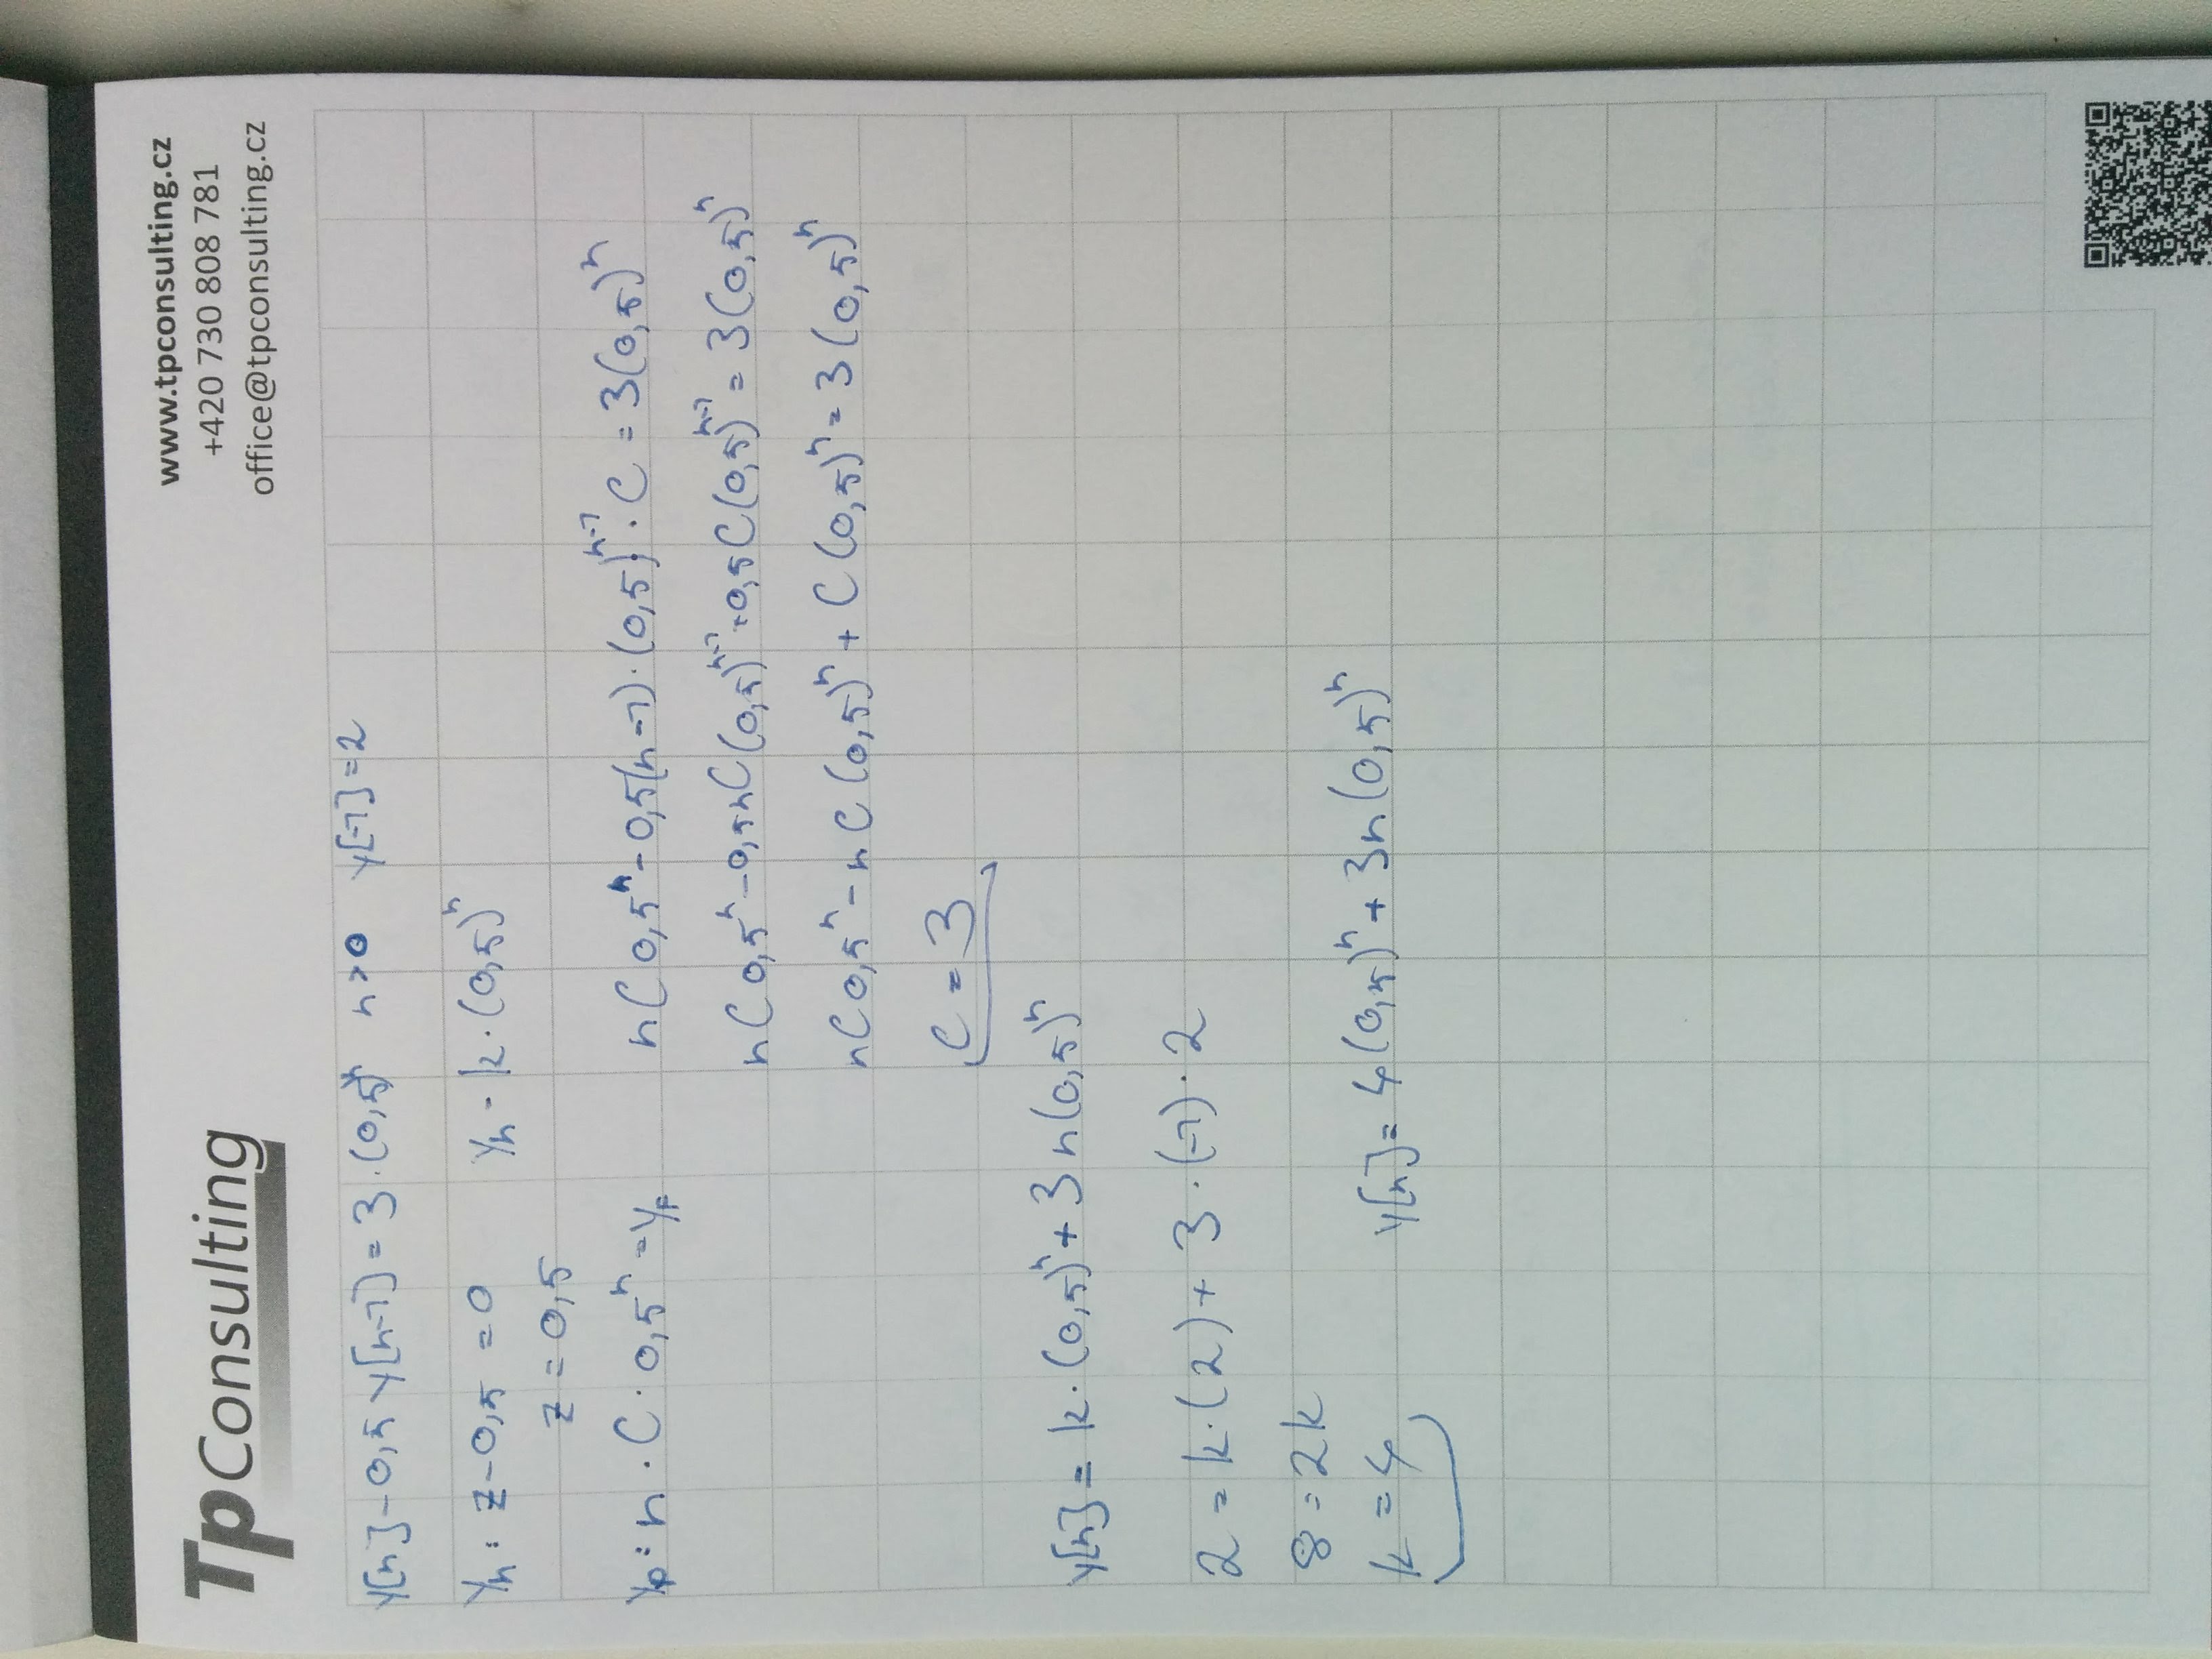 TpConsulting
www.tpconsulting.cz
+420 730 808 781
office@tpconsulting.cz
y[n]-0,5 y[n-1] = 3·(0,5)ⁿ n>0 y[-1]=2
yₕ: z-0,5 =0 yₕ - k·(0,5)ⁿ
z=0,5
yₚ: n·C·0,5ⁿ =yₚ nC0,5ⁿ-0,5(n-1)·(0,5)ⁿ⁻¹·C = 3(0,5)ⁿ
nC0,5ⁿ-0,5nC(0,5)ⁿ⁻¹+0,5C(0,5)ⁿ⁻¹ = 3(0,5)ⁿ
nC0,5ⁿ - nC(0,5)ⁿ + C(0,5)ⁿ = 3(0,5)ⁿ
C = 3
y[n] = k·(0,5)ⁿ + 3n(0,5)ⁿ
2 = k·(2) + 3·(-1)·2
8 = 2k
k = 4 y[n] = 4(0,5)ⁿ + 3n(0,5)ⁿ